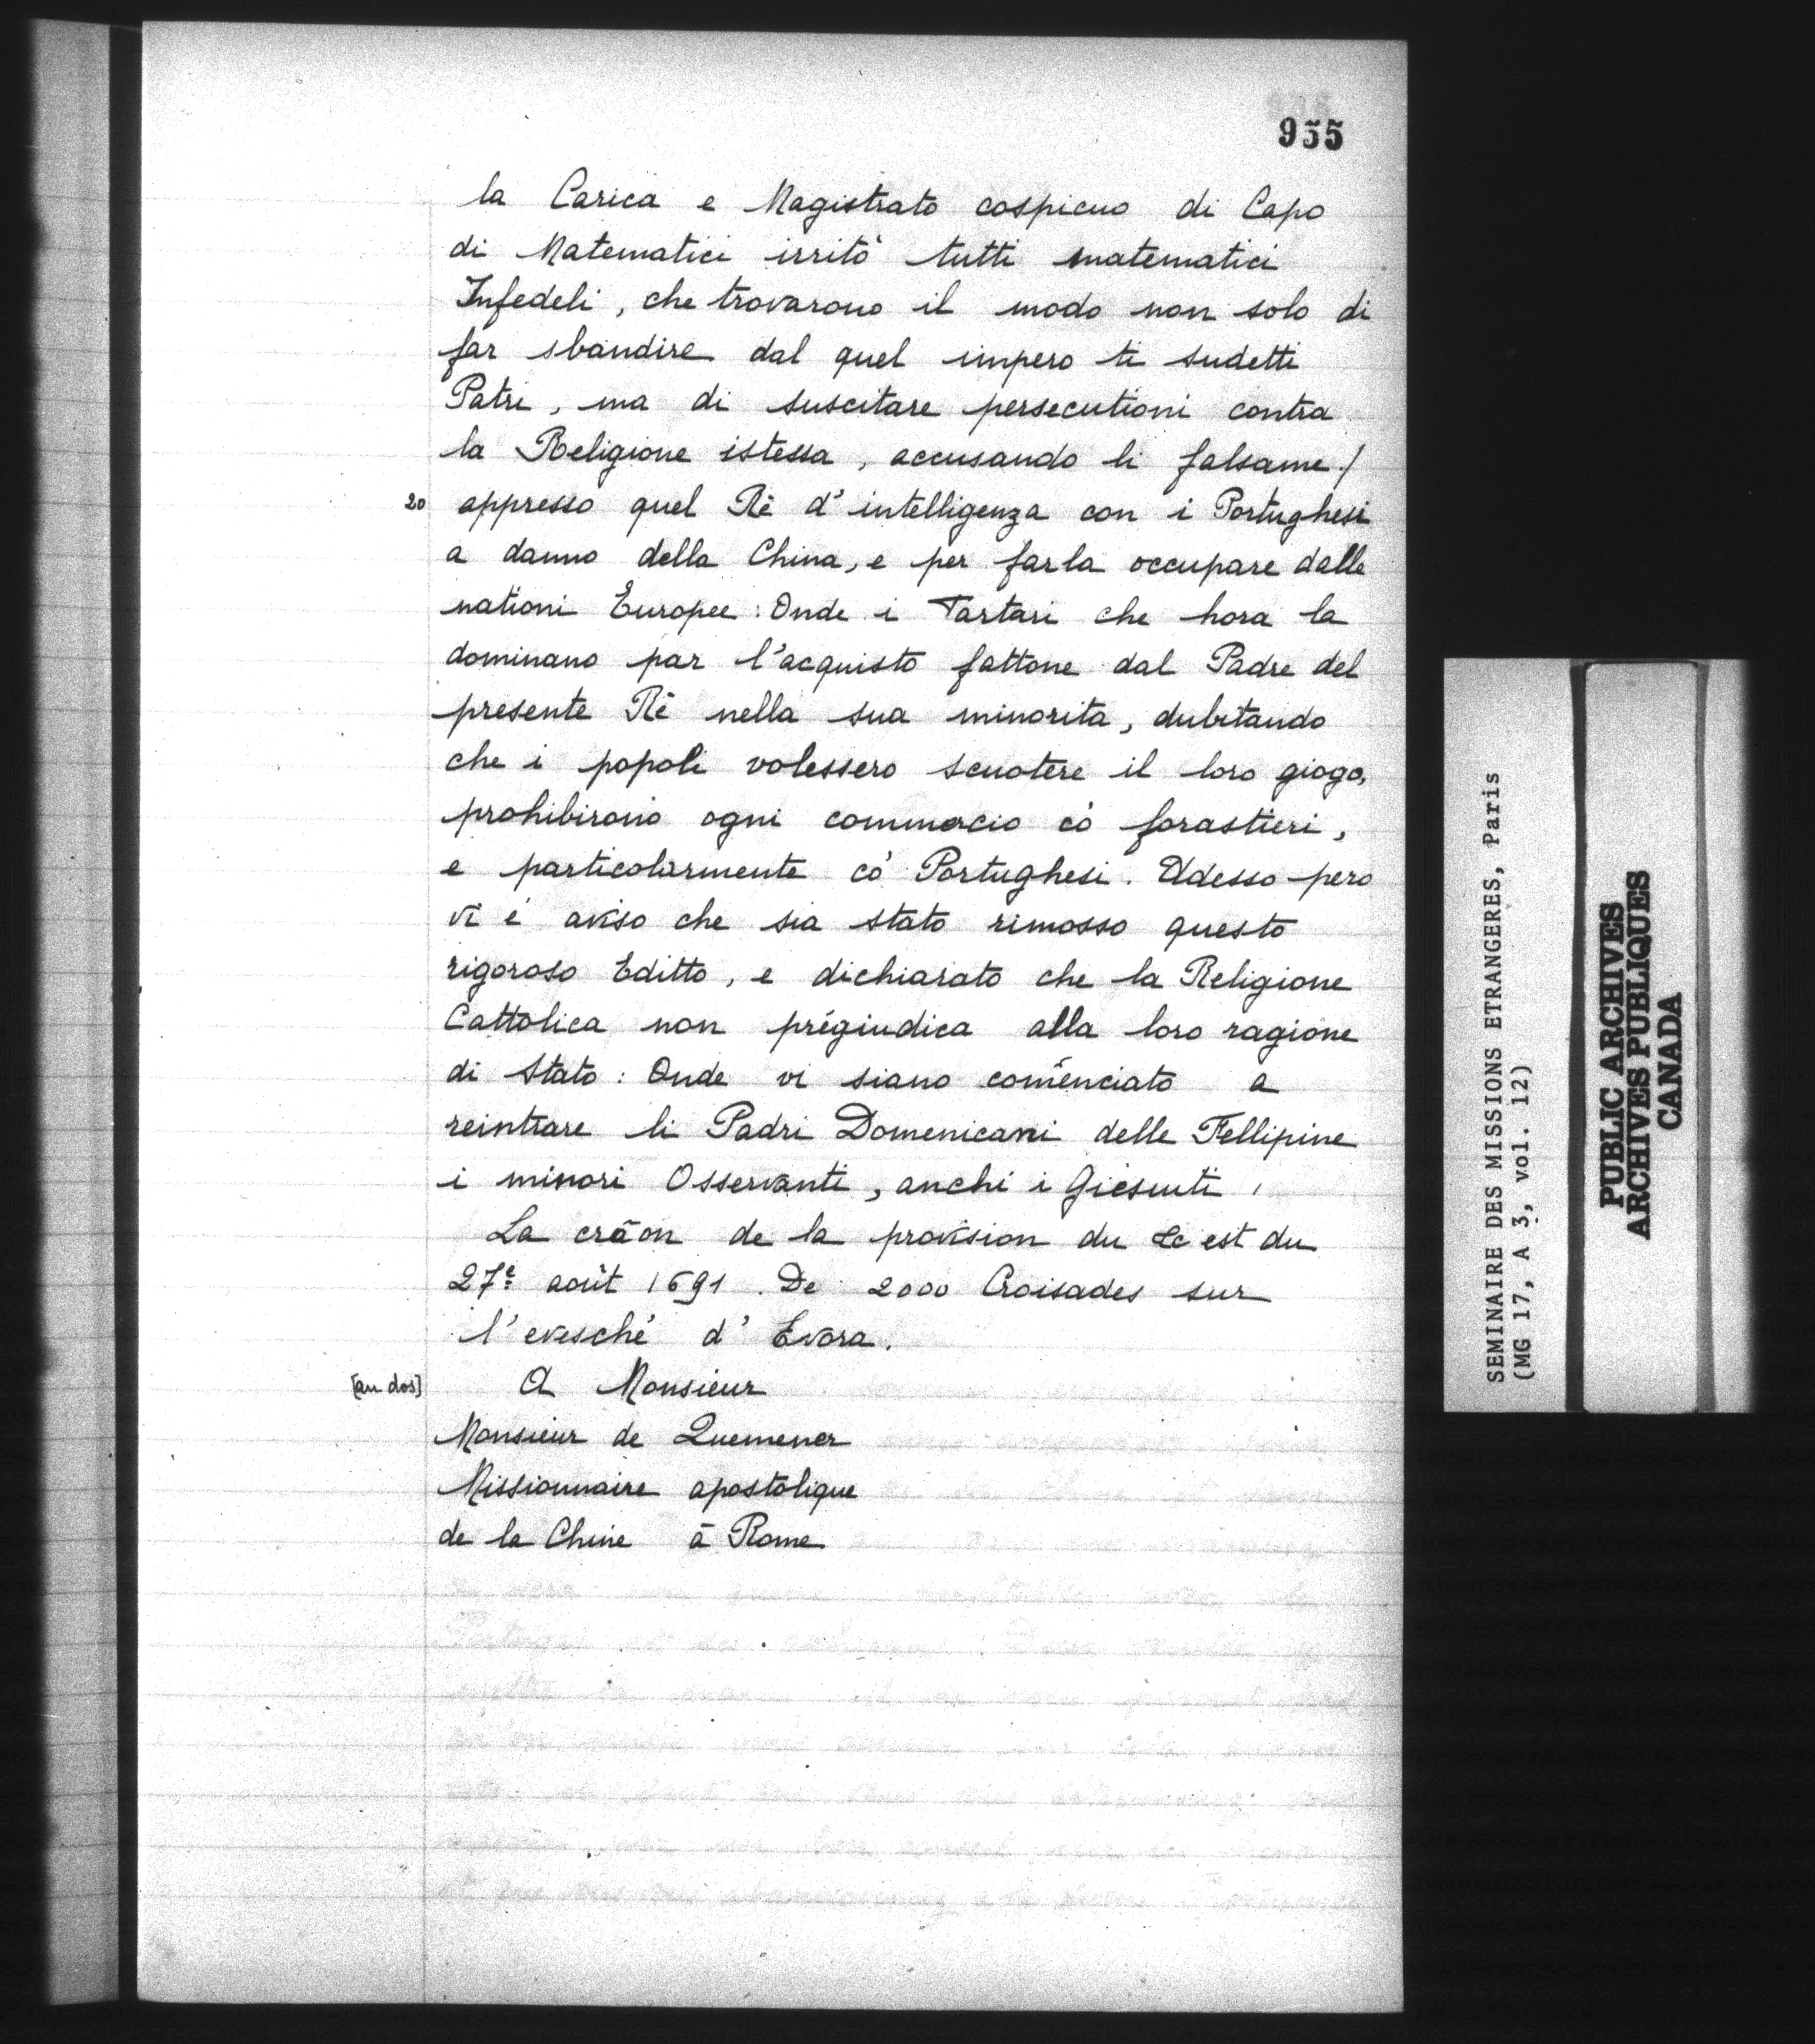 955
la Carica e Magistrato cospicuo di Capo
di Matematici irritò tutti matematici
Infedeli, che trovarono il modo non solo di
far sbandire dal quel impero ti sudetti
Patri, ma di suscitare persecutioni contra
la Religione istessa, accusando li falsame/
20 appresso quel Rè d'intelligenza con i Portughesi
a danno della China, e per farla occupare dalle
nationi Europee: Onde i Tartari che hora la
dominano par l'acquisto fattone dal Padre del
presente Rè nella sua minorita, dubitando
che i popoli volessero scuotere il loro giogo,
prohibirono ogni commercio cò forastieri,
e particolarmente cò Portughesi. Adesso pero
vi é aviso che sia stato rimosso questo
rigoroso Editto, e dichiarato che la Religione
Cattolica non prégiudica alla loro ragione
di Stato: Onde vi siano comēnciato a
reintrare li Padri Domenicani delle Fellipine
i minori Osservanti, anchi i Giesuiti,
La crãon de la provision du est du
27e août 1691. De 2000 Croisades sur
l'evesché d'Evora.
[au dos] A Monsieur
Monsieur de Quemener
Missionnaire apostolique
de la Chine à Rome
SEMINAIRE DES MISSIONS ETRANGERES, Paris
(MG 17, A 3, vol. 12)
PUBLIC ARCHIVES
ARCHIVES PUBLIQUES
CANADA